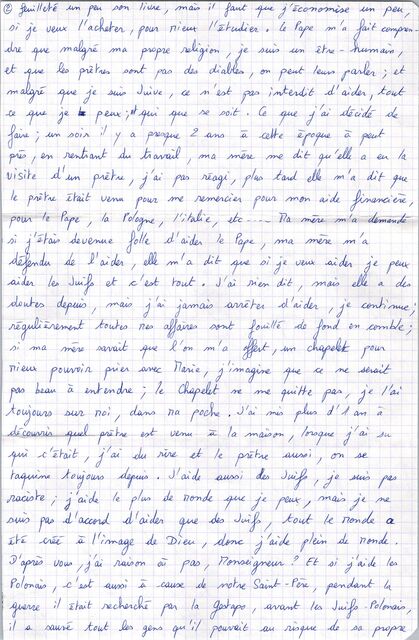 ② feuilleté un peu son livre, mais il faut que j'économise un peu
si je veux l'acheter, pour mieux l'étudier. Le Pape m'a fait compren-
dre que malgré ma propre religion, je suis un être-humain,
et que les prêtres sont pas des diables, on peut leurs parler ; et
malgré que je suis Juive, ce n'est pas interdit d'aider, tout
ce que je peux ; et qui que se soit. Ce que j'ai décidé de
faire ; un soir il y a presque 2 ans à cette époque à peut
près, en rentrant du travail, ma mère me dit qu'elle a eu la
visite d'un prêtre, j'ai pas réagi, plus tard elle m'a dit que
le prêtre était venu pour me remercier pour mon aide financière,
pour le Pape, la Pologne, l'italie, etc ---- Ma mère m'a demandé
si j'étais devenue folle d'aider le Pape, ma mère m'a
défendu de l'aider, elle m'a dit que si je veux aider je peux
aider les Juifs et c'est tout. J'ai rien dit, mais elle a des
doutes depuis, mais j'ai jamais arrêter d'aider, je continue ;
régulièrement toutes mes affaires sont fouillé de fond en comble ;
si ma mère savait que l'on m'a offert, un chapelet pour
mieux pouvoir prier avec Marie, j'imagine que ce ne serait
pas beau à entendre ; le Chapelet ne me quitte pas, je l'ai
toujours sur moi, dans ma poche. J'ai mis plus d'1 an à
découvrir quel prêtre est venu à la maison, lorsque j'ai su
qui c'était, j'ai du rire et le prêtre aussi, on se
taquine toujours depuis. J'aide aussi des Juifs, je suis pas
raciste ; j'aide le plus de monde que je peux, mais je ne
suis pas d'accord d'aider que des Juifs, tout le monde a
été créé à l'image de Dieu, donc j'aide plein de monde.
D'après vous, j'ai raison ou pas, Monseigneur ? Et si j'aide les
Polonais, c'est aussi à cause de notre Saint-Père, pendant la
guerre il était recherché par la gestapo, avant les Juifs-Polonais,
il a sauvé tout les gens qu'il pouvait au risque de sa propre